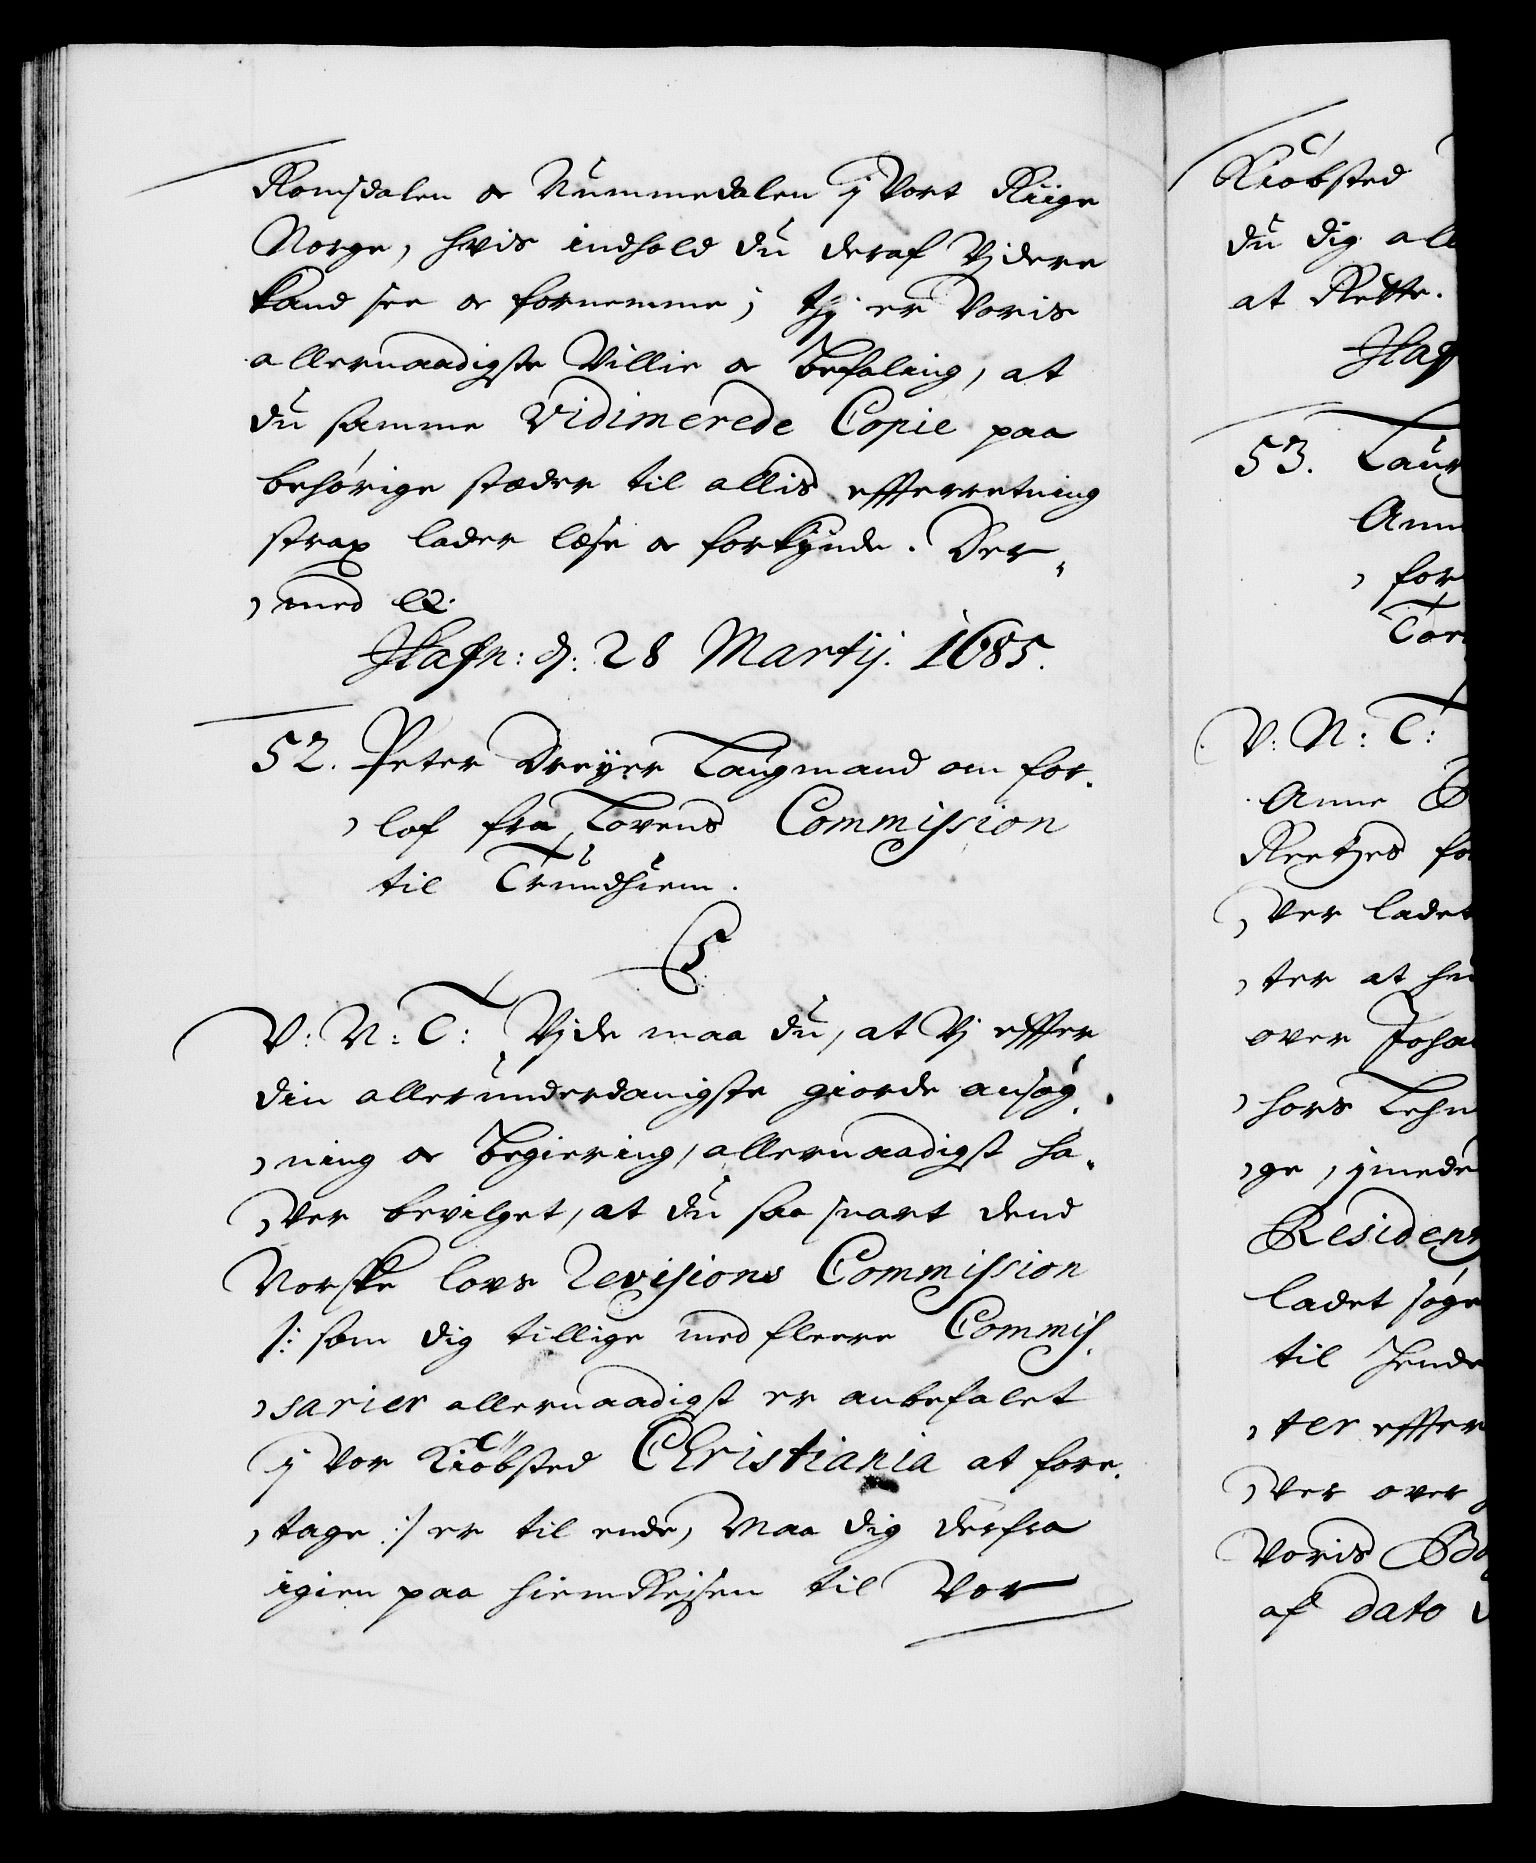 Romsdalen oc Nummedalen j Vort Riige
Norge, hvis indhold du deraf Vjdere
kand see oc fornemme; thj er Voris
allernaadigste Villie oc Befaling, at
du samme Vidimerede Copie paa
behørige stæder til allis effterretning
strax lader læse oc forkynde. Der
med &c.
Hafn: d: 28 Martij. 1685.
52. Peter Dreyer Laugmand om for
lof fra Lovens Commission
til Trundhiem.
C5
V: N: T: Vjde maa du, at Vj effter
din allerunderdanigste giorde ansøg
ning oc Begiering, allernaadigst ha
ver bevilget, at du saa snart dend
Norske lovs Revisions Commission
/: som dig tillige med fleere Commis
sarier allernaadigst er anbefalet
j Vor Kiöbsted Christiania at fore
tage :/ er til ende, Maa dig derfra
igien paa hiemReisen til Vor
Kiöbsted
du dig all
at Rette.
Haf
53. Laur
Ann
for
Tor
V: N: T:
Anne B
Reetzes fo
ver ladet
ter at hu
over Joha
hors Lehn
ge, jmede
Residen
ladet søge
til Hende
ter effter
ver over
Voris Bo
af dato